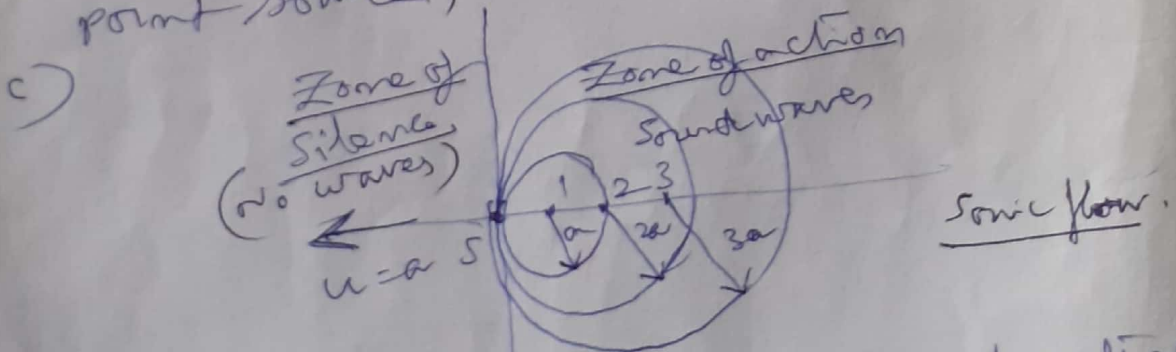 point
c)
Zone of
Silence
(No waves)
Zone of action
Sound waves
1 2 3
a 2a 3a
S
u = a
Sonic flow.